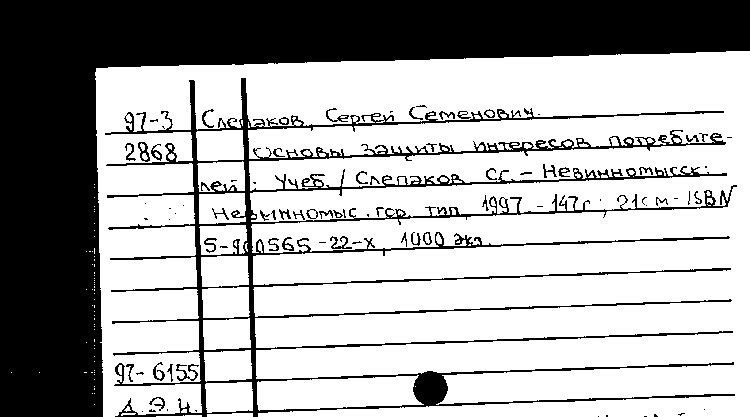 97-3 Слепаков, Сергей Семенович.
2868 Основы защиты интересов потребите-
лей : Учеб. / Слепаков СС - Невинномысск:
Невинномыс. гор. тип, 1997. - 147с ; 21см - ISBN
5-900565-22-х, 1000 экз.
97-6155
Д.Э.Н.